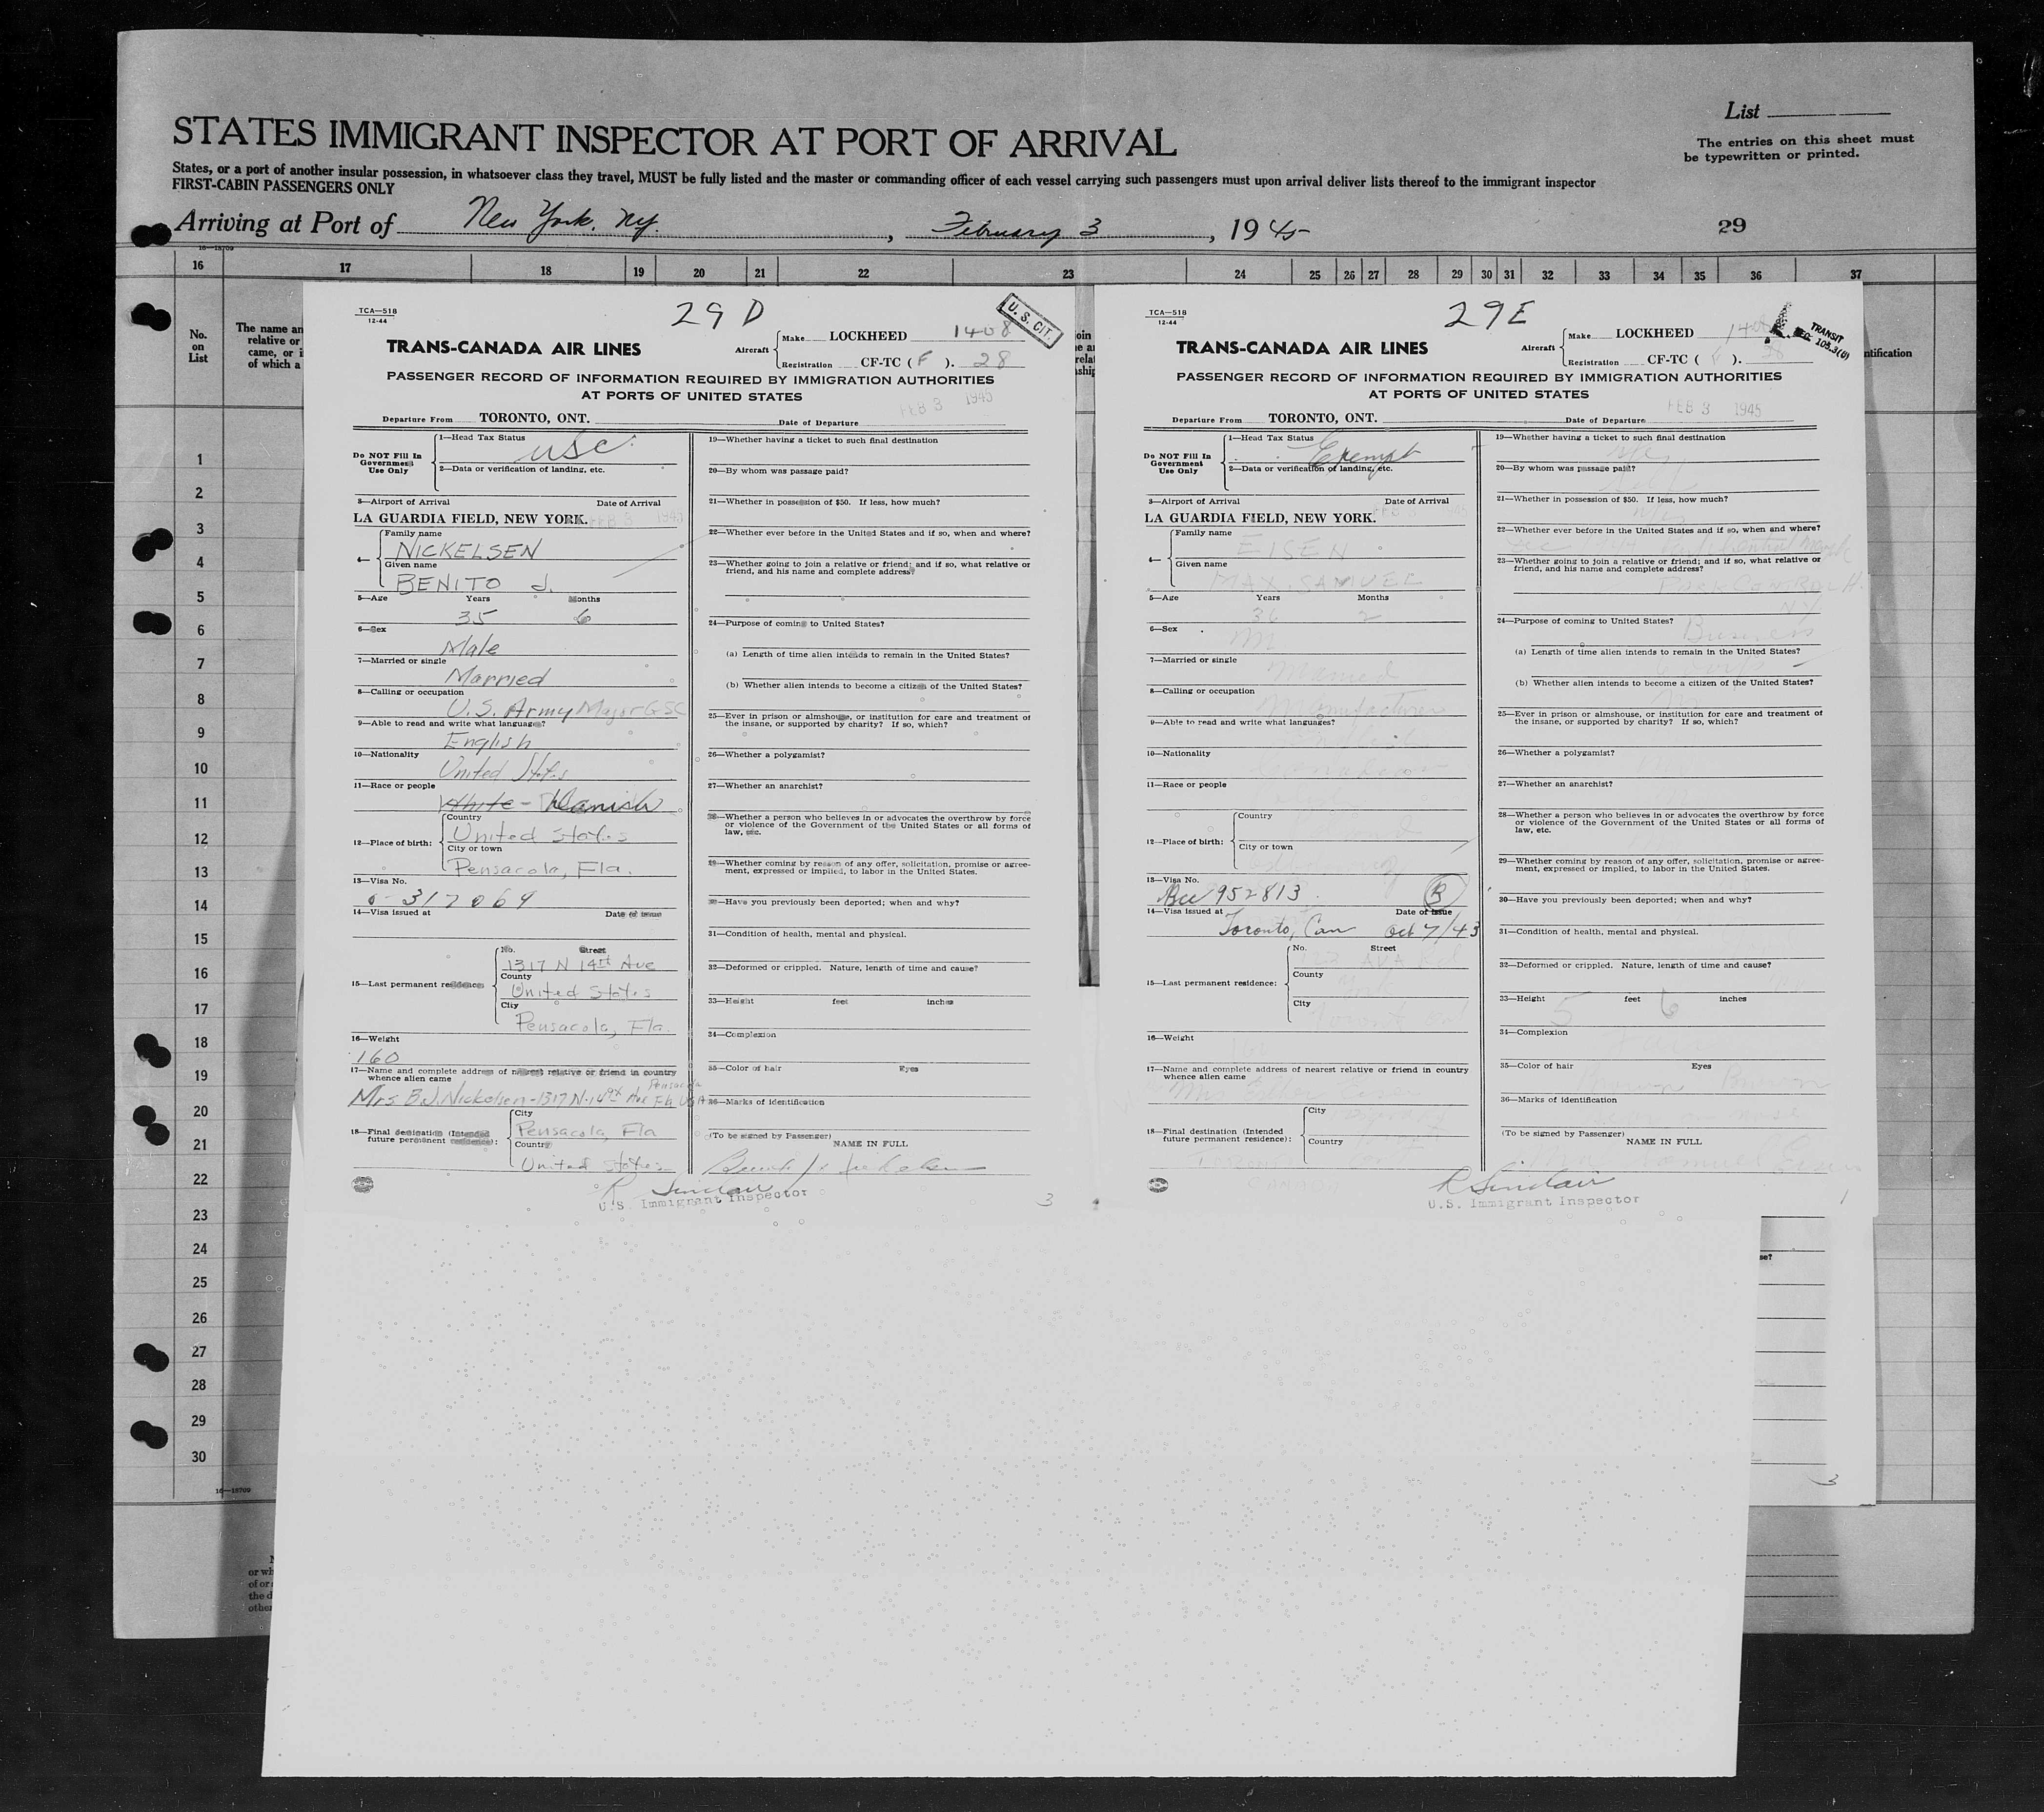 List
STATES IMMIGRANT INSPECTOR AT PORT OF ARRIVAL
The entries on this sheet must
be typewritten or printed.
States, or a port of another insular possession, in whatsoever class they travel, MUST be fully listed and the master or commanding officer of each vessel carrying such passengers must upon arrival deliver lists thereof to the immigrant inspector
FIRST-CABIN PASSENGERS ONLY
Arriving at Port of New York, NY. , February 3 , 1945
29
16—15709
16 17 18 19 20 21 22 23 24 25 26 27 28 29 30 31 32 33 34 35 36 37
No.
on
List
The name an
relative or
came, or i
of which a
ntification
1
2
3
4
5
6
7
8
9
10
11
12
13
14
15
16
17
18
19
20
21
22
23
24
25
26
27
28
29
30
16—15709
or wh
of or
the d
other
TCA—518
12-44
29 D
U. S. CIT.
TRANS-CANADA AIR LINES
Aircraft
Make LOCKHEED 1408
Registration CF-TC ( F ). 28
PASSENGER RECORD OF INFORMATION REQUIRED BY IMMIGRATION AUTHORITIES
AT PORTS OF UNITED STATES
Departure From TORONTO, ONT. Date of Departure FEB 3 1945
Do NOT Fill In
Government
Use Only
1—Head Tax Status USC
2—Data or verification of landing, etc.
3—Airport of Arrival Date of Arrival
LA GUARDIA FIELD, NEW YORK. FEB 3 1945
4—
Family name
NICKELSEN
Given name
BENITO J.
5—Age Years Months
35 6
6—Sex
Male
7—Married or single
Married
8—Calling or occupation
U.S. Army Major GSC
9—Able to read and write what languages?
English
10—Nationality
United States
11—Race or people
White - Danish
12—Place of birth:
Country
United States
City or town
Pensacola, Fla.
13—Visa No.
0-317069
14—Visa issued at Date of issue
15—Last permanent residence
No. Street
1317 N 14th Ave
County
United States
City
Pensacola, Fla.
16—Weight
160
17—Name and complete address of nearest relative or friend in country
whence alien came
Mrs B.J. Nickelsen-1317 N. 14th Ave Pensacola Fla USA
18—Final destination (Intended
future permanent residence):
City
Pensacola, Fla
Country
United States
19—Whether having a ticket to such final destination
20—By whom was passage paid?
21—Whether in possession of $50. If less, how much?
22—Whether ever before in the United States and if so, when and where?
23—Whether going to join a relative or friend; and if so, what relative or
friend, and his name and complete address?
24—Purpose of coming to United States?
(a) Length of time alien intends to remain in the United States?
(b) Whether alien intends to become a citizen of the United States?
25—Ever in prison or almshouse, or institution for care and treatment of
the insane, or supported by charity? If so, which?
26—Whether a polygamist?
27—Whether an anarchist?
28—Whether a person who believes in or advocates the overthrow by force
or violence of the Government of the United States or all forms of
law, etc.
29—Whether coming by reason of any offer, solicitation, promise or agree-
ment, expressed or implied, to labor in the United States.
30—Have you previously been deported; when and why?
31—Condition of health, mental and physical.
32—Deformed or crippled. Nature, length of time and cause?
33—Height feet inches
34—Complexion
35—Color of hair Eyes
36—Marks of identification
(To be signed by Passenger)
NAME IN FULL
R Sinclair
U.S. Immigrant Inspector
3
TCA—518
12-44
29E
TRANSIT
SEC 105.3(U)
TRANS-CANADA AIR LINES
Aircraft
Make LOCKHEED
Registration CF-TC ( ).
PASSENGER RECORD OF INFORMATION REQUIRED BY IMMIGRATION AUTHORITIES
AT PORTS OF UNITED STATES
Departure From TORONTO, ONT. Date of Departure FEB 3 1945
Do NOT Fill In
Government
Use Only
1—Head Tax Status Exempt
2—Data or verification of landing, etc.
3—Airport of Arrival Date of Arrival
LA GUARDIA FIELD, NEW YORK.
4—
Family name
EISEN
Given name
MAX SAMUEL
5—Age Years Months
36 2
6—Sex
M
7—Married or single
Married
8—Calling or occupation
Manufacturer
9—Able to read and write what languages?
10—Nationality
Canadian
11—Race or people
12—Place of birth:
Country
City or town
13—Visa No.
Bcc 1952813 B
14—Visa issued at Date of issue
Toronto, Can Oct 7/43
15—Last permanent residence:
No. Street
County
City
16—Weight
17—Name and complete address of nearest relative or friend in country
whence alien came
18—Final destination (Intended
future permanent residence):
City
Country
CANADA
19—Whether having a ticket to such final destination
Yes
20—By whom was passage paid?
21—Whether in possession of $50. If less, how much?
Yes
22—Whether ever before in the United States and if so, when and where?
23—Whether going to join a relative or friend; and if so, what relative or
friend, and his name and complete address?
NY
24—Purpose of coming to United States? Business
(a) Length of time alien intends to remain in the United States?
(b) Whether alien intends to become a citizen of the United States?
25—Ever in prison or almshouse, or institution for care and treatment of
the insane, or supported by charity? If so, which?
26—Whether a polygamist?
27—Whether an anarchist?
28—Whether a person who believes in or advocates the overthrow by force
or violence of the Government of the United States or all forms of
law, etc.
29—Whether coming by reason of any offer, solicitation, promise or agree-
ment, expressed or implied, to labor in the United States.
30—Have you previously been deported; when and why?
31—Condition of health, mental and physical.
32—Deformed or crippled. Nature, length of time and cause?
33—Height 5 feet 6 inches
34—Complexion
35—Color of hair Eyes
Brown Brown
36—Marks of identification
(To be signed by Passenger)
NAME IN FULL
R Sinclair
U.S. Immigrant Inspector
1
3